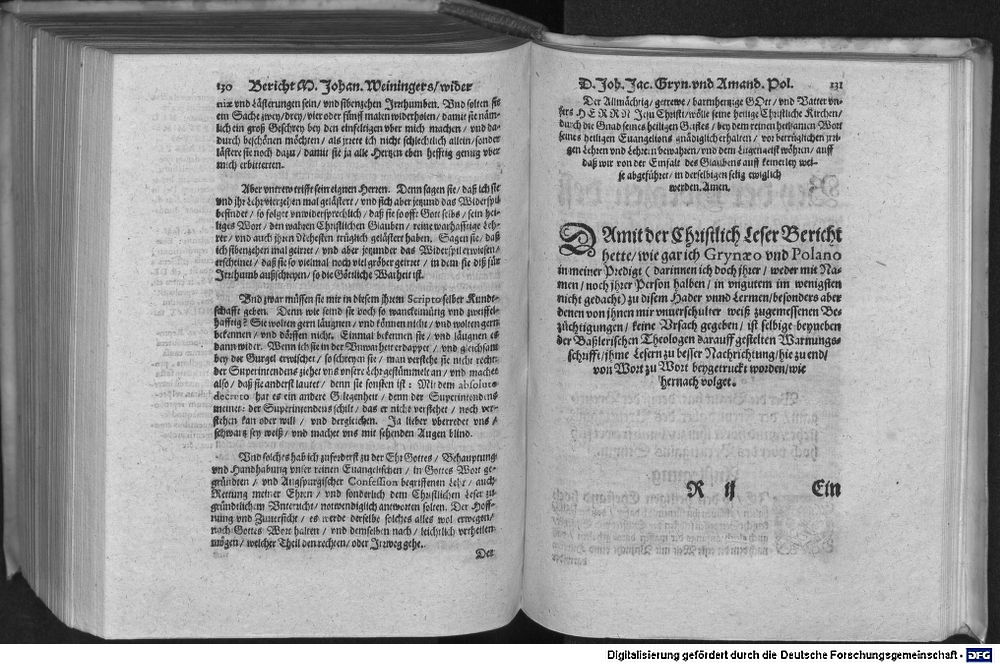 130 Bericht M. Johan. Weiningers/ wider
nix vnd Lästerungen sein/ vnd sibenzehen Irrthumben. Vnd solten sie
ein Sache zwey/ drey/ vier oder fünff malen widerholen/ damit sie näm-
lich ein groß Geschrey bey den einfeltigen vber mich machen/ vnd da-
durch beschönen möchten/ als jrrete ich nicht schlechtlich allein/ sonder
lästere sie noch dazu/ damit sie ja alle Hertzen eben hefftig genug vber
mich erbitterten.
Aber vntrew trifft sein eignen Herren. Denn sagen sie/ daß ich sie
vnd jhr Lehr vierzehen mal gelästert/ vnd sich aber jetzund das Widerspil
befindet/ so folget vnwidersprechlich/ daß sie so offt Gott selbs/ sein hei-
liges Wort/ den wahren Christlichen Glauben/ reine warhafftige Leh-
rer/ vnd auch jhren Nehesten trüglich gelästert haben. Sagen sie/ daß
ich sibenzehen mal geirret/ vnd aber jetzunder das Widerspiler wisen/
erscheinet/ daß sie so vielmal noch viel gröber geirret/ in dem sie diß für
Irrthumb außschreyen/ so die Göttliche Warheit ist.
Vnd zwar müssen sie mir in diesem jhrem Scripto selber Kundt-
schafft geben. Denn wie seind sie doch so wanckelmütig vnd zweiffel-
hafftig? Sie wolten gern läugnen/ vnd können nicht/ vnd wolten gern
bekennen/ vnd dörffen nicht. Einmal bekennen sie/ vnd läugnen es
dann wider. Wenn ich sie in der Vnwarheit erdappet/ vnd gleichsam
bey der Gurgel erwischet/ so schreyen sie/ man verstehe sie nicht recht:
der Superintendens ziehet vns vnsere Lehr gestümmelt an/ vnd machet
also/ daß sie anderst lautet/ denn sie sonsten ist: Mit dem absoluto
decreto hat es ein andere Gelegenheit/ denn der Superintendens
meinet: der Superintendens schilt/ das er nicht verstehet/ noch ver-
stehen kan oder will/ vnd dergleichen. Ja lieber vberredet vns/
schwartz sey weiß/ vnd machet vns mit sehenden Augen blind.
Vnd solches hab ich zuforderst zu der Ehr Gottes/ Behauptung
vnd Handhabung vnser reinen Euangelischen/ in Gottes Wort ge-
gründten/ vnd Augspurgischer Confession begriffenen Lehr/ auch
Rettung meiner Ehren/ vnd sonderlich dem Christlichen Leser zu
gründtlichem Vnterricht/ notwendiglich antworten sollen. Der Hoff-
nung vnd Zuuersicht/ es werde derselbe solches alles wol erwegen/
nach Gottes Wort halten/ vnd demselben nach/ leichtlich vertheilen
mögen/ welcher Theil den rechten/ oder Irrweg gehe.
Der
D. Joh. Jac. Gryn. vnd Amand. Pol. 131
Der Allmächtig/ getrewe/ barmhertzige GOtt/ vnd Vatter vn-
sers HERRN Jesu Christi/ wölle seine heilige Christliche Kirchen/
durch die Gnad seines heiligen Geistes/ bey dem reinen heilsamen Wort
seines heiligen Euangelions gnädiglich erhalten/ vor betrüglichen jrri-
gen Lehren vnd Lehrern bewahren/ vnd dem Lugengeist wöhren/ auff
daß wir von der Einfalt des Glaubens auff keinerley wei-
se abgeführet/ in derselbigen selig ewiglich
werden. Amen.
DAmit der Christlich Leser Bericht
hette/ wie gar ich Grynæo vnd Polano
in meiner Predigt (darinnen ich doch jhrer/ weder mit Na-
men/ noch jhrer Person halben/ in vngutem im wenigsten
nicht gedacht) zu disem Hader vnnd Lermen/ besonders aber
denen von jhnen mir vnuerschulter weiß zugemessenen Be-
züchtigungen/ keine Vrsach gegeben/ ist selbige beyneben
der Baßlerischen Theologen darauff gestelten Warnungs-
schrifft/ jhme Lesern zu besser Nachrichtung/ hie zu end/
von Wort zu Wort beygetruckt worden/ wie
hernach volget.
R ij Ein
Digitalisierung gefördert durch die Deutsche Forschungsgemeinschaft - DFG